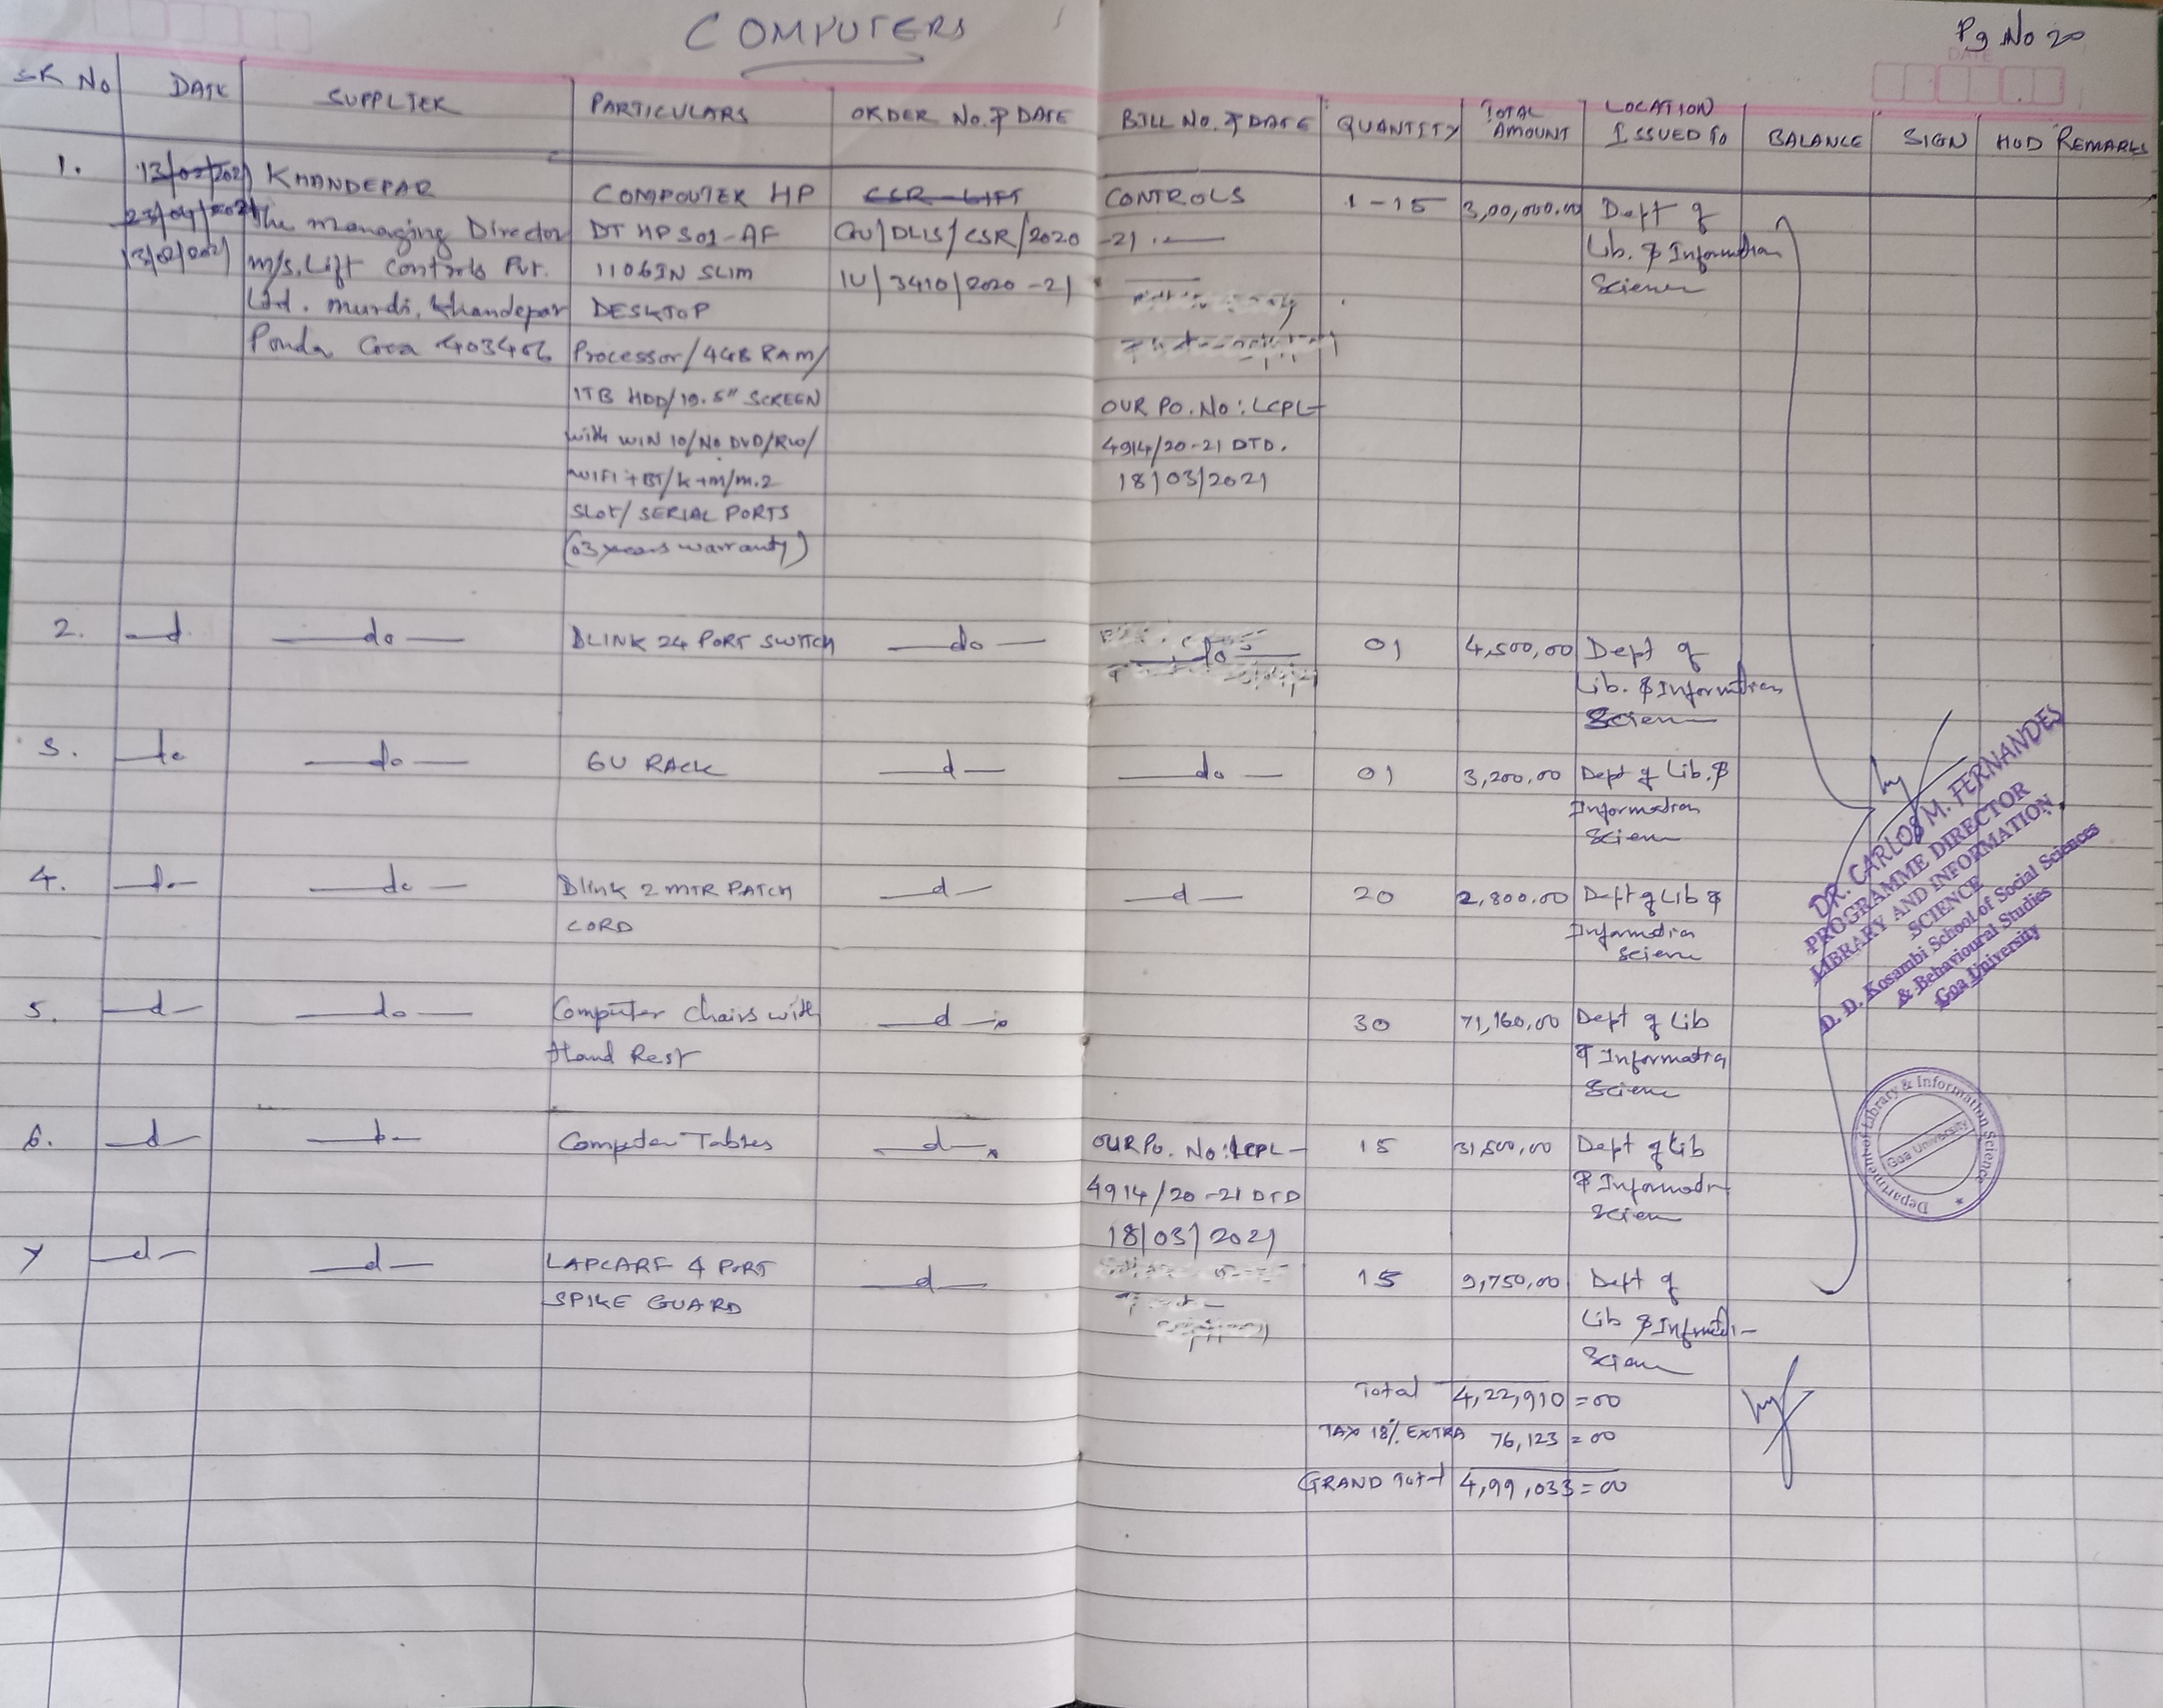 COMPUTERS
Pg No 20
DATE
SR No DATE SUPPLIER PARTICULARS ORDER No. & DATE BILL No. & DATE QUANTITY TOTAL AMOUNT LOCATION ISSUED To BALANCE SIGN HOD REMARKS
1. KHANDEPAR COMPOUTER HP CSR-LIFT CONTROLS 1-15 3,00,000.00 Dept of
The Managing Director DT HP S01-AF GU/DLIS/CSR/2020 -21 Lib. & Information
13/02/2021 M/s. Lift Controls Pvt. 1106IN SLIM IU/3410/2020-21 Science
Ltd. Murdi, Khandepar DESKTOP
Ponda Goa 403406 Processor/4GB RAM/
1TB HDD/19.5" SCREEN OUR PO. No: LCPL-
with WIN 10/No DVD/RW/ 4914/20-21 DTD.
WIFI+BT/K+M/M.2 18/03/2021
Slot/ SERIAL PORTS
(03 years warranty)
2. —d —do— DLINK 24 PORT SWITCH —do— —do— 01 4,500.00 Dept of
Lib. & Information
Scien
3. —do —do— 6U RACK —d— —do— 01 3,200.00 Dept of Lib. &
Information
Scien
4. —do— —do— Dlink 2 MTR PATCH —d— —d— 20 2,800.00 Dept of Lib &
CORD Information
Scienc
5. —d— —do— Computer Chairs with —d— 30 71,160.00 Dept of Lib
Hand Rest & Information
Scienc
6. —d— —do— Computer Tables —d— OUR Po. No: LCPL- 15 31,500.00 Dept of Lib
4914/20-21 DTD & Informadn
18/03/2021 Scien
7 —d— —d— LAPCARE 4 PORT —d— 15 9,750.00 Dept of
SPIKE GUARD Lib & Informati-
Scien
Total 4,22,910=00
TAX 18% EXTRA 76,123=00
GRAND Total 4,99,033=00
DR. CARLOS M. FERNANDES
PROGRAMME DIRECTOR
LIBRARY AND INFORMATION
SCIENCE
D. D. Kosambi School of Social Sciences
& Behavioural Studies
Goa University
Department of Library & Information Science
Goa University